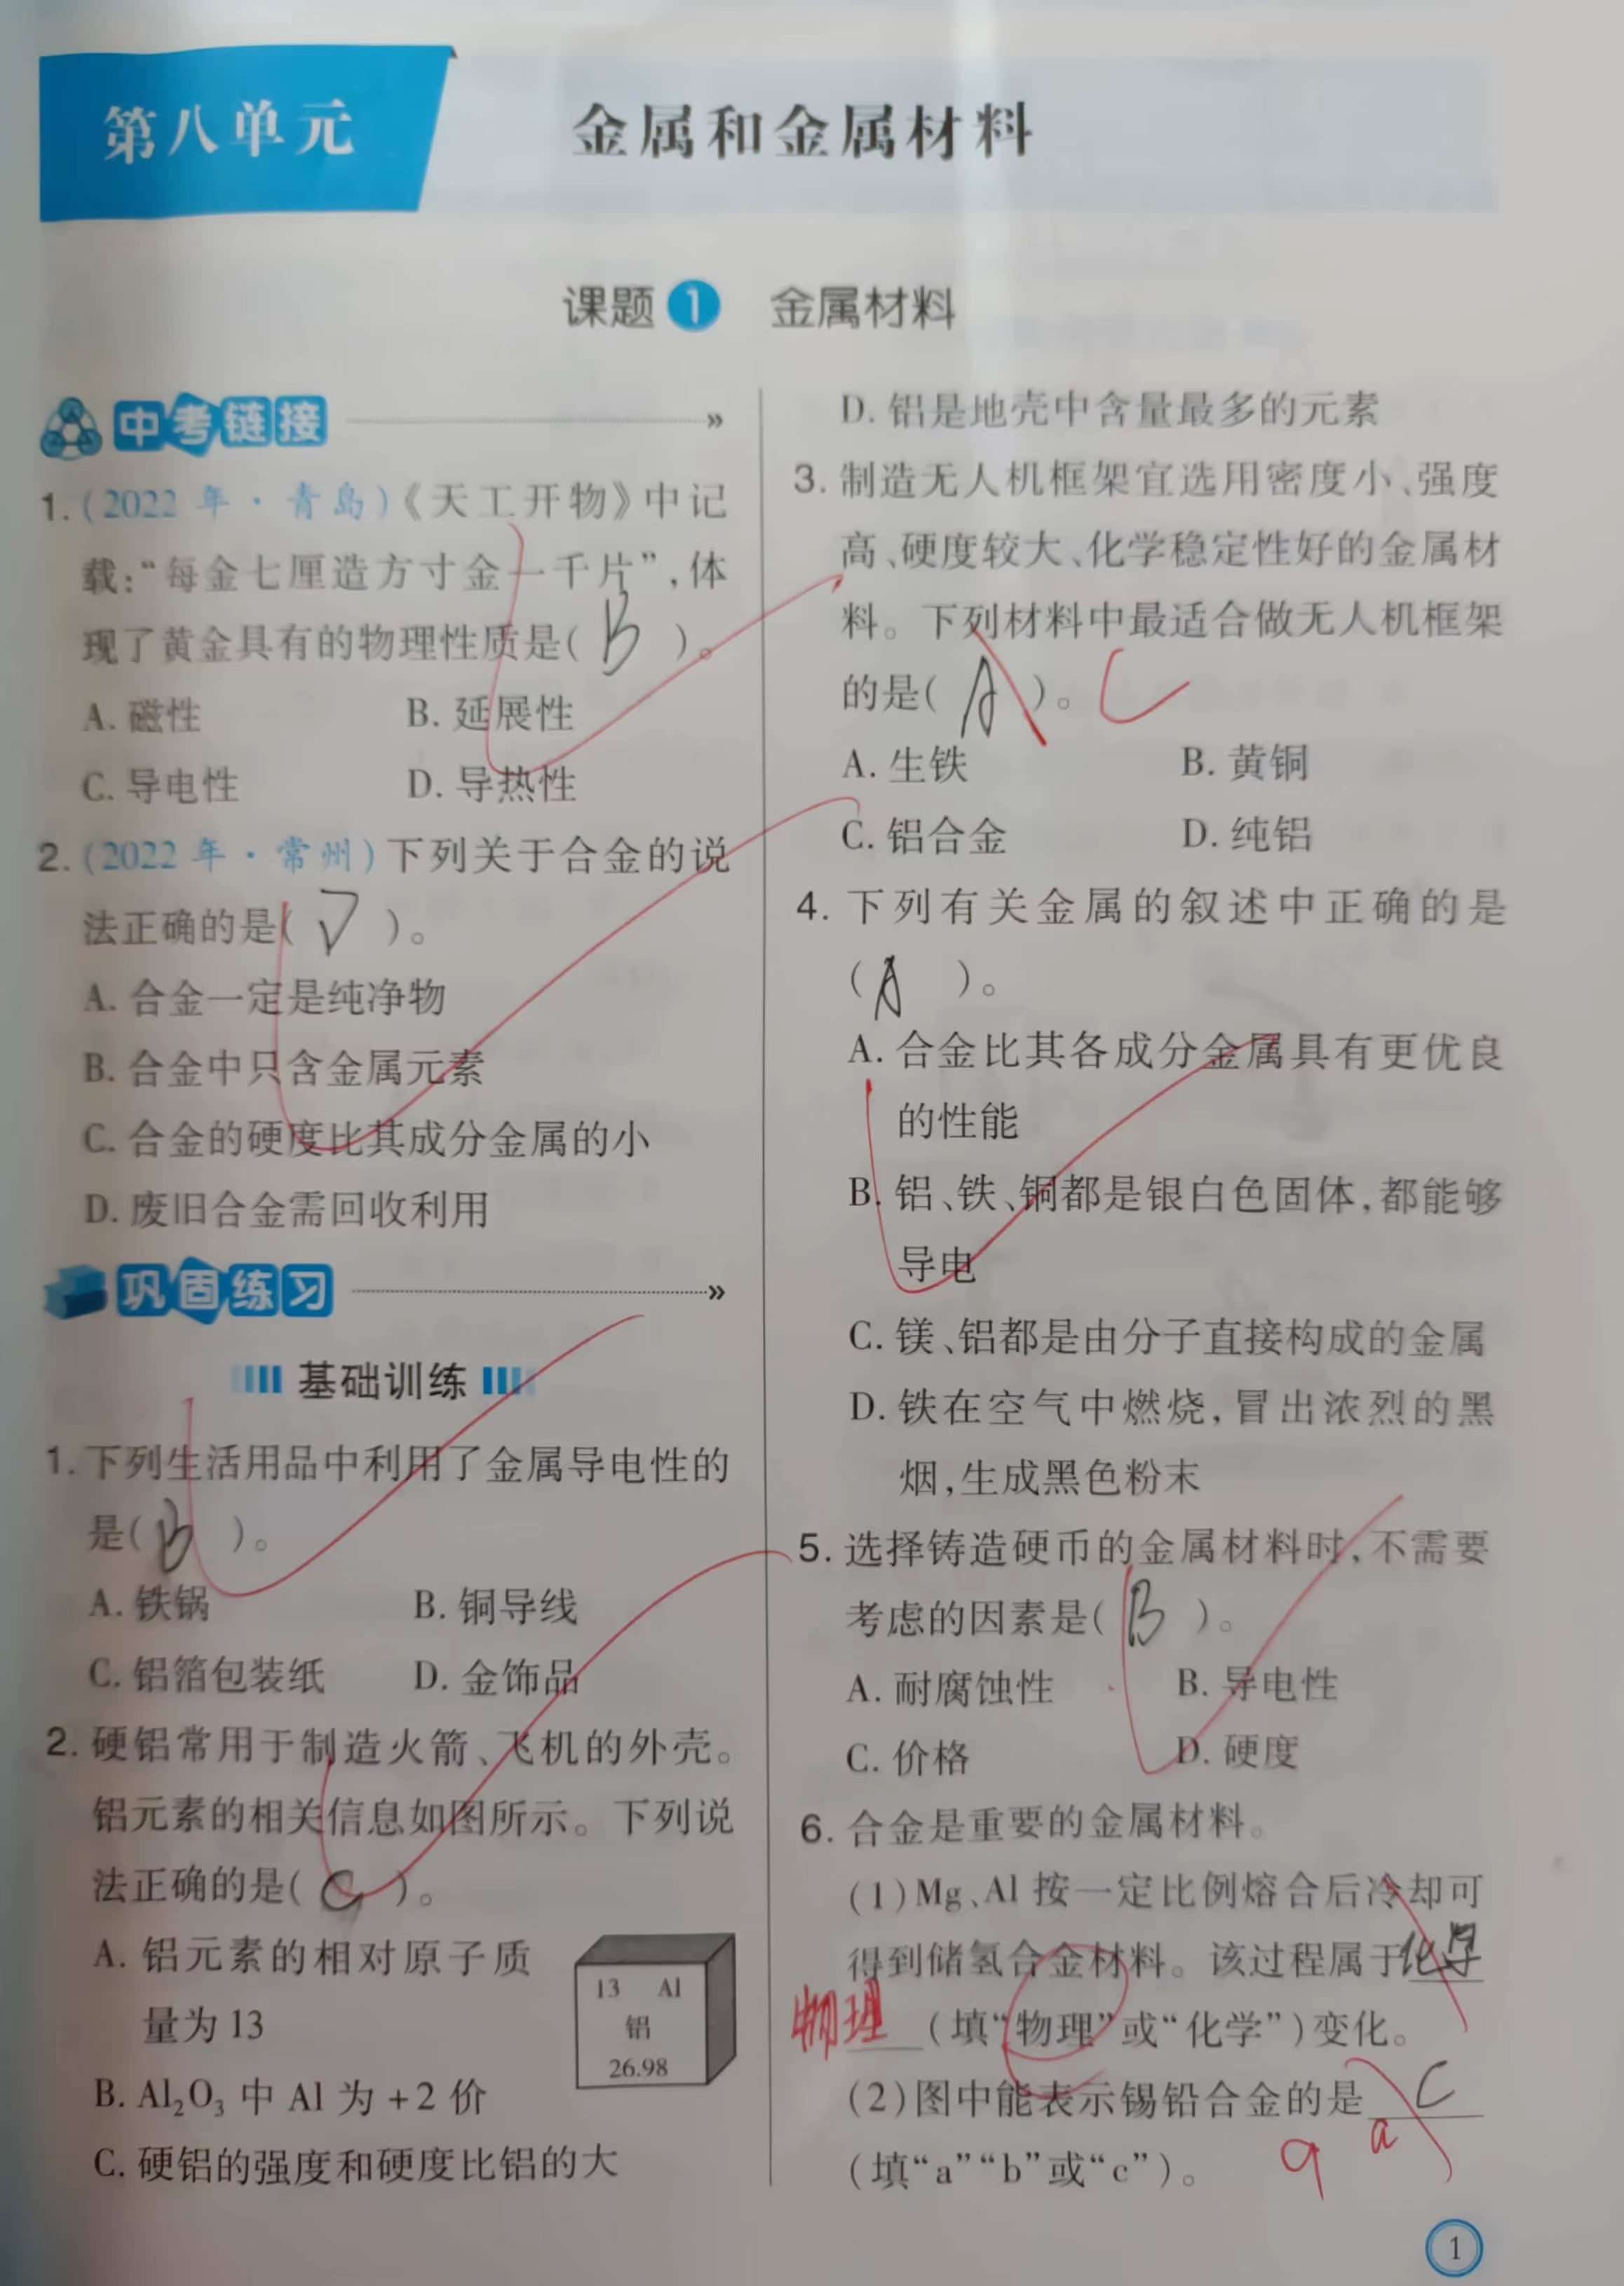 第八单元
金属和金属材料
课题1 金属材料
中考链接
1.(2022年·青岛)《天工开物》中记
载:“每金七厘造方寸金一千片”,体
现了黄金具有的物理性质是( B )。
A. 磁性 B. 延展性
C. 导电性 D. 导热性
2.(2022年·常州)下列关于合金的说
法正确的是( D )。
A. 合金一定是纯净物
B. 合金中只含金属元素
C. 合金的硬度比其成分金属的小
D. 废旧合金需回收利用
巩固练习
基础训练
1. 下列生活用品中利用了金属导电性的
是( B )。
A. 铁锅 B. 铜导线
C. 铝箔包装纸 D. 金饰品
2. 硬铝常用于制造火箭、飞机的外壳。
铝元素的相关信息如图所示。下列说
法正确的是( C )。
A. 铝元素的相对原子质
量为13
13 Al
铝
26.98
B. Al₂O₃ 中 Al 为 +2 价
C. 硬铝的强度和硬度比铝的大
D. 铝是地壳中含量最多的元素
3. 制造无人机框架宜选用密度小、强度
高、硬度较大、化学稳定性好的金属材
料。下列材料中最适合做无人机框架
的是( A )。 C
A. 生铁 B. 黄铜
C. 铝合金 D. 纯铝
4. 下列有关金属的叙述中正确的是
( A )。
A. 合金比其各成分金属具有更优良
的性能
B. 铝、铁、铜都是银白色固体,都能够
导电
C. 镁、铝都是由分子直接构成的金属
D. 铁在空气中燃烧,冒出浓烈的黑
烟,生成黑色粉末
5. 选择铸造硬币的金属材料时,不需要
考虑的因素是( B )。
A. 耐腐蚀性 B. 导电性
C. 价格 D. 硬度
6. 合金是重要的金属材料。
(1)Mg、Al 按一定比例熔合后冷却可
得到储氢合金材料。该过程属于化学
物理 (填“物理”或“化学”)变化。
(2)图中能表示锡铅合金的是 C
a
(填“a”“b”或“c”)。 a
1